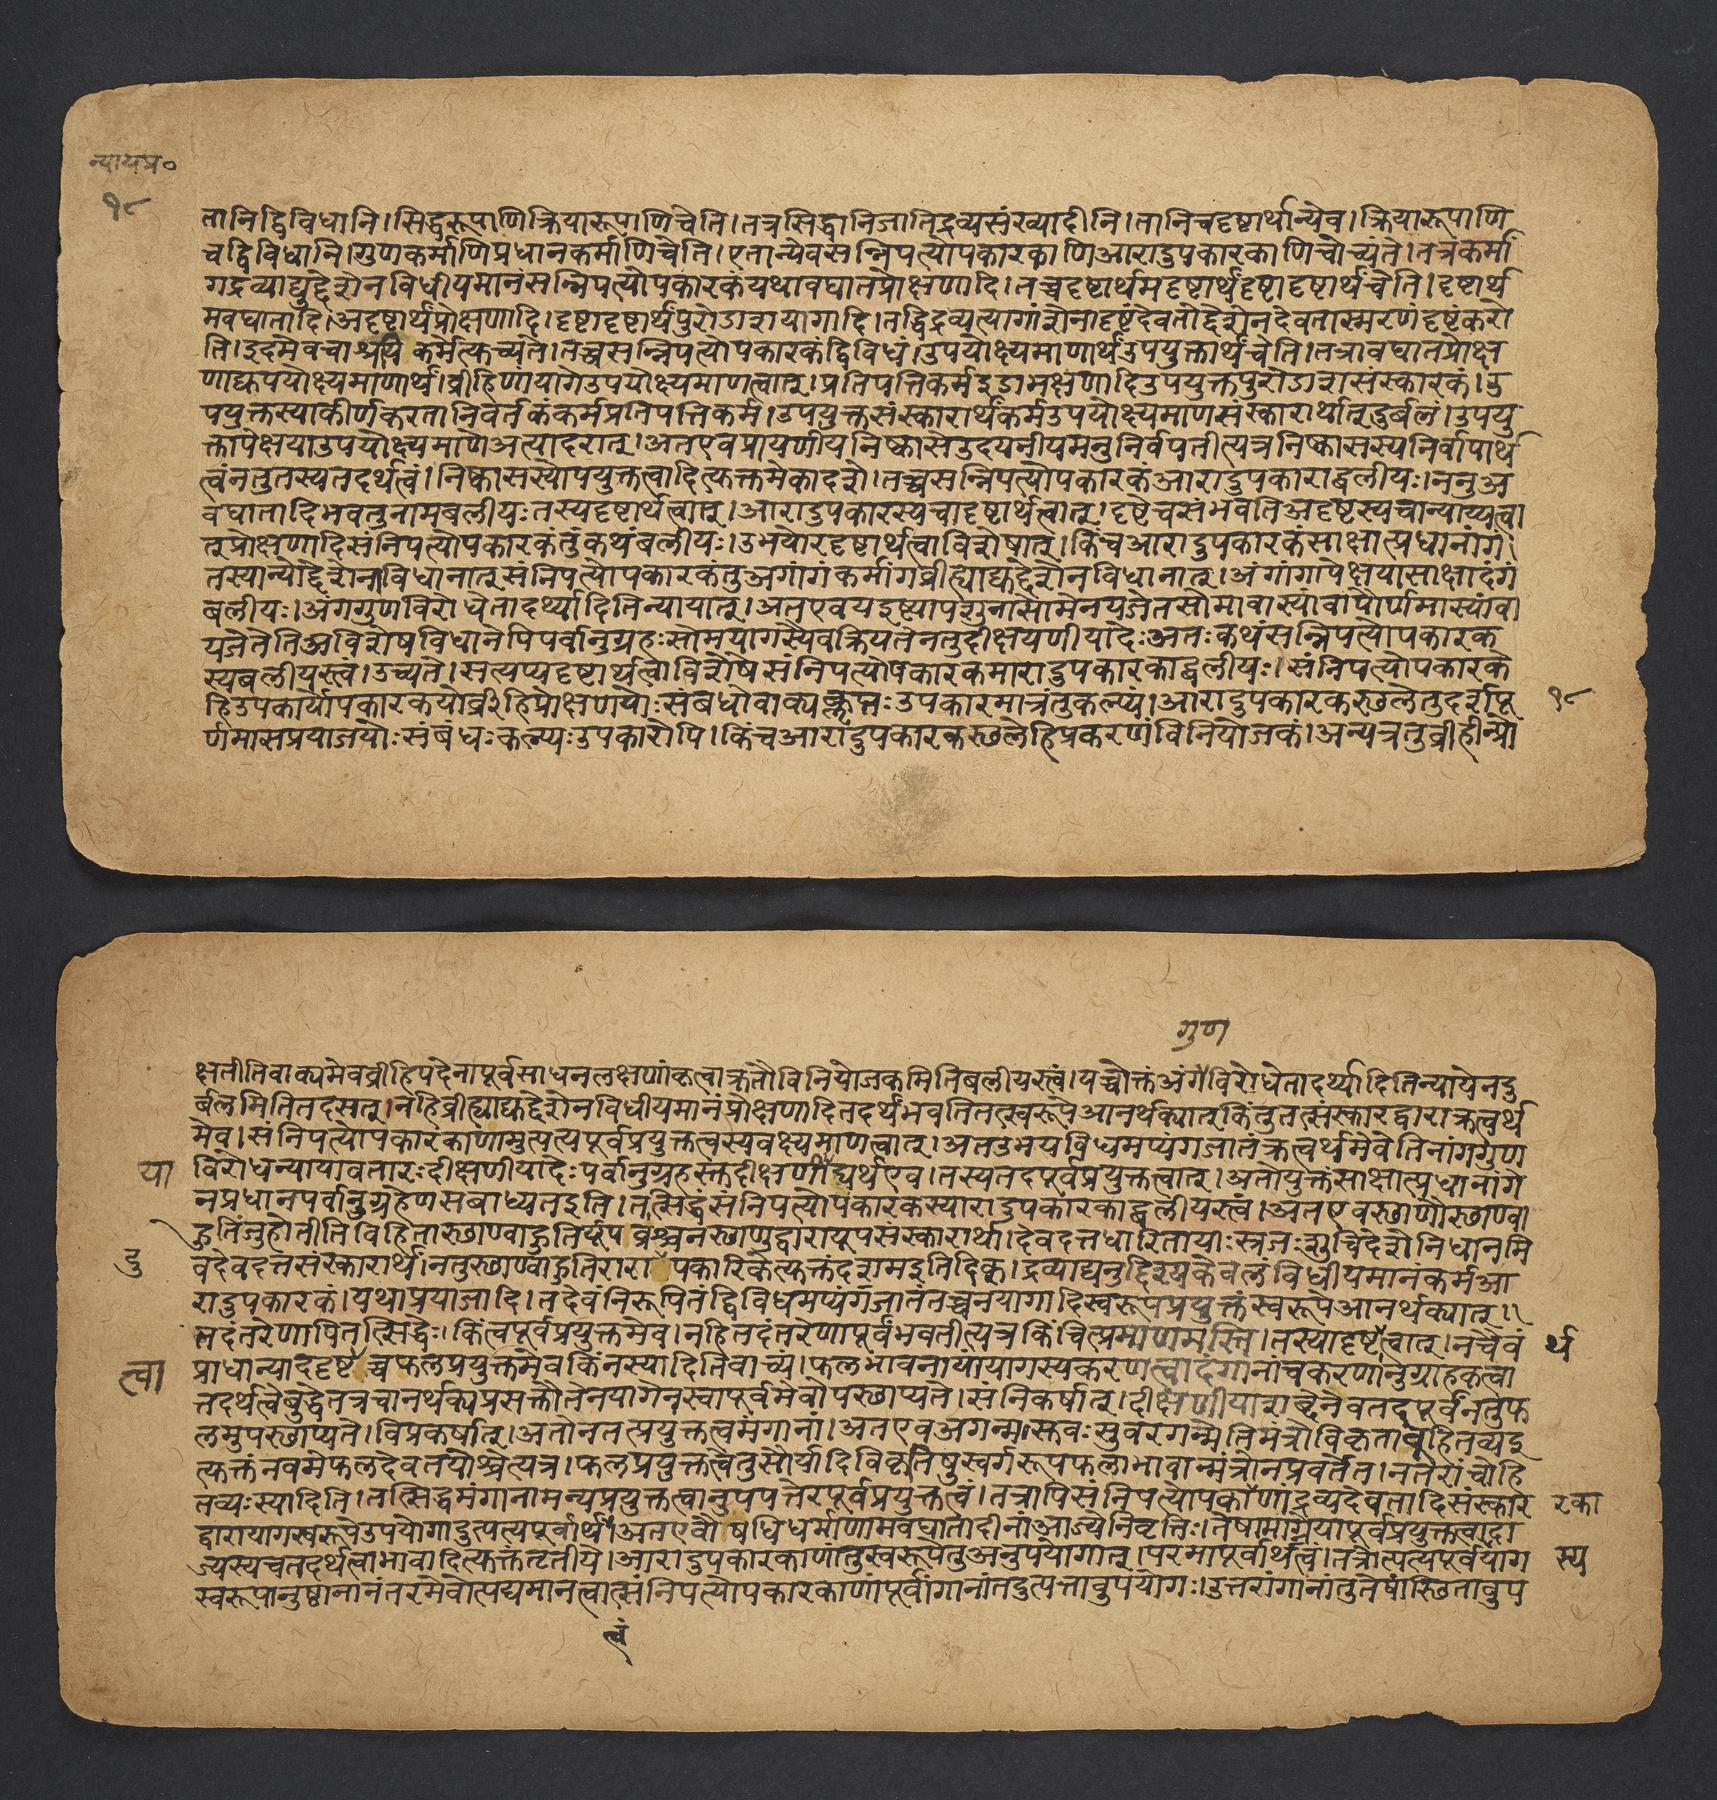 न्यायप्र०
१८
तानिद्विविधानि।सिद्धरूपाणिक्रियारूपाणिचेति।तत्रसिद्धानिजातिद्रव्यसंख्यादीनि।तानिचदृष्टार्थान्येव।क्रियारूपाणि
चद्विविधानि।गुणकर्माणिप्रधानकर्माणिचेति।एतान्येवसन्निपत्योपकारकाणिआरादुपकारकाणिचोच्यंते।तत्रकर्मां
गद्रव्याद्युद्देशेनविधीयमानंसन्निपत्योपकारकंयथावघातप्रोक्षणादि।तच्चदृष्टार्थमदृष्टार्थंदृष्टादृष्टार्थंचेति।दृष्टार्थ
मवघातादि।अदृष्टार्थंप्रोक्षणादि।दृष्टादृष्टार्थंपुरोडाशयागादि।तद्धिद्रव्यत्यागांशेनादृष्टंदेवतोद्देशेनदेवतास्मरणंदृष्टंकरो
ति।इदमेवचाश्रयि कर्मेत्युच्यते।तच्चसन्निपत्योपकारकंद्विविधं।उपयोक्ष्यमाणार्थंउपयुक्तार्थंचेति।तत्रावघातप्रोक्ष
णाद्युपयोक्ष्यमाणार्थं।व्रीहिणांयागेउपयोक्ष्यमाणत्वात्।प्रतिपत्तिकर्मइडाभक्षणादिउपयुक्तपुरोडाशसंस्कारकं।उ
पयुक्तस्याकीर्णकरतानिवर्तकंकर्मप्रतिपत्तिकर्म।उपयुक्तसंस्कारार्थंकर्मउपयोक्ष्यमाणसंस्कारार्थात्दुर्बलं।उपयु
क्तापेक्षयाउपयोक्ष्यमाणेअत्यादरात्।अतएवप्रायणीयनिष्कासेउदयनीयमनुनिर्वपतीत्यत्रनिष्कासस्यनिर्वापार्थ
त्वंनतुतस्यतदर्थत्वं।निष्कासस्योपयुक्तत्वादित्युक्तमेकादशे।तच्चसन्निपत्योपकारकंआरादुपकाराद्बलीयः।ननुअ
वघातादिभवतुनामबलीयःतस्यदृष्टार्थत्वात्।आरादुपकारस्यचादृष्टार्थत्वात्।दृष्टेचसंभवतिअदृष्टस्यचान्याय्यत्वा
त्प्रोक्षणादिसंनिपत्योपकारकंतुकथंबलीयः।उभयोरदृष्टार्थत्वाविशेषात्।किंचआरादुपकारकंसाक्षात्प्रधानांगं
तस्यान्योद्देशेनाविधानात्संनिपत्योपकारकंतुअंगांगंकर्मांगव्रीह्याद्युद्देशेनविधानात्।अंगांगापेक्षयासाक्षादंगं
बलीयः।अंगगुणविरोधेतादर्थ्यादितिन्यायात्।अतएवयइष्ट्यापशुनासोमेनयजेतसोमावास्यांवापौर्णमास्यांवा
यजेतेतिअविशेषविधानेपिपर्वानुग्रहःसोमयागस्यैवक्रियतेनतुदीक्षयणीयादेःअतःकथंसन्निपत्योपकारक
स्यबलीयस्त्वं।उच्यते।सत्यप्यदृष्टार्थत्वाविशेषेसंनिपत्योपकारकमारादुपकारकाद्बलीयः।संनिपत्योपकारके
हिउपकार्योपकारकयोर्व्रीहिप्रोक्षणयोःसंबंधोवाक्यक्लृप्तःउपकारमात्रंतुकल्प्यं।आरादुपकारकस्थलेतुदर्शपू
१८
र्णमासप्रयाजयोःसंबंधःकल्प्यःउपकारोपि।किंचआरादुपकारकस्थलेहिप्रकरणंविनियोजकं।अन्यत्रतुव्रीहीन्प्रो
गुण
क्षतीतिवाक्यमेवव्रीहिपदेनापूर्वसाधनलक्षणांकृत्वाक्रतौविनियोजकमितिबलीयस्त्वं।यच्चोक्तंअंगविरोधेतादर्थ्यादितिन्यायेनदु
र्बलमितितदसत्।नहिव्रीह्याद्युद्देशेनविधीयमानंप्रोक्षणादितदर्थंभवतितत्स्वरूपेआनर्थक्यात्किंतुतत्संस्कारद्वाराक्रत्वर्थ
मेव।संनिपत्योपकारकाणामुत्पत्त्यपूर्वप्रयुक्तत्वस्यवक्ष्यमाणत्वात्।अतउभयविधमप्यंगजातंक्रत्वर्थमेवेतिनांगगुण
या विरोधन्यायावतारःदीक्षणीयादेःपर्वानुग्रहस्तुदीक्षणीद्यर्थएव।तस्यतदपूर्वप्रयुक्तत्वात्।अतोयुक्तंसाक्षात्प्रधानांगे
नप्रधानपर्वानुग्रहेणसबाध्यतइति।तत्सिद्धंसंनिपत्योपकारकस्यारादुपकारकाद्बलीयस्त्वं।अतएवस्थाणौस्थाण्वा
हुतिंजुहोतीतिविहितास्थाण्वाहुतिर्यूप व्रश्चनस्थाणुद्वारायूपसंस्कारार्था।देवदत्तधारितायाःस्रजःशुचिदेशेनिधानमि
दु वदेवदत्तसंस्कारार्थं।नतुस्थाण्वाहुतिरारा पकारिकेत्युक्तंदशमइतिदिक्।द्रव्याद्यनुद्दिश्यकेवलंविधीयमानंकर्मआ
रादुपकारकं।यथाप्रयाजादि।तदेवंनिरूपितंद्विविधमप्यंगजातंतच्चनयागादिस्वरूपप्रयुक्तंस्वरूपेआनर्थक्यात्।।
तदंतरेणापितत्सिद्धेः।किंत्वपूर्वप्रयुक्तमेव।नहितदंतरेणापूर्वंभवतीत्यत्रकिंचित्प्रमाणमस्ति।तस्यादृष्टत्वात्।नचैवं र्थ
त्वा प्राधान्याददृष्ट च्चफलप्रयुक्तमेवकिंनस्यादितिवाच्यं।फलभावनायांयागस्यकरणत्वादंगानांचकरणानुग्राहकत्वा
त्तदर्थत्वेबुद्धेतत्रचानर्थक्यप्रसक्तौतेनयागेनस्वापूर्वमेवोपस्थाप्यते।संनिकर्षात्।दीक्षणीयाशब्देनेवतदपूर्वंनतुफ
लमुपस्थाप्यते।विप्रकर्षात्।अतोनतत्प्रयुक्तत्वमंगानां।अतएवअगन्मस्तवःसुवरगन्मेतिमंत्रोविकृतावूहितव्यइ
त्युक्तंनवमेफलदेवतयोश्चेत्यत्र।फलप्रयुक्तत्वेतुसौर्यादिविकृतिषुस्वर्गरूपफलाभावान्मंत्रोनप्रवर्तेत।नतरांचोहि
तव्यःस्यादिति।तत्सिद्धमंगानामन्यप्रयुक्तत्वानुपपत्तेरपूर्वप्रयुक्तत्वं।तत्रापिसंनिपत्योपकाणांद्रव्यदेवतादिसंस्कार रका
द्वारायागस्वरूपेउपयोगादुत्पत्त्यपूर्वार्थ।अतएवौषधिधर्माणामवघातादीनांआज्येनिवृत्तिः।तेषामाग्नेयापूर्वप्रयुक्तत्वादा
ज्यस्यचतदर्थत्वाभावादित्युक्तंतृतीये।आरादुपकारकाणांतुस्वरूपेतुअनुपयोगात्।परमापूर्वार्थत्वं।तत्रोत्पत्त्यपूर्वयाग स्य
स्वरूपानुष्ठानानंतरमेवोत्पद्यमानत्वात्संनिपत्योपकारकाणांपूर्वांगानांतदुत्पत्तावुपयोगः।उत्तरांगानांतुतेषांस्थितावुप
त्वं